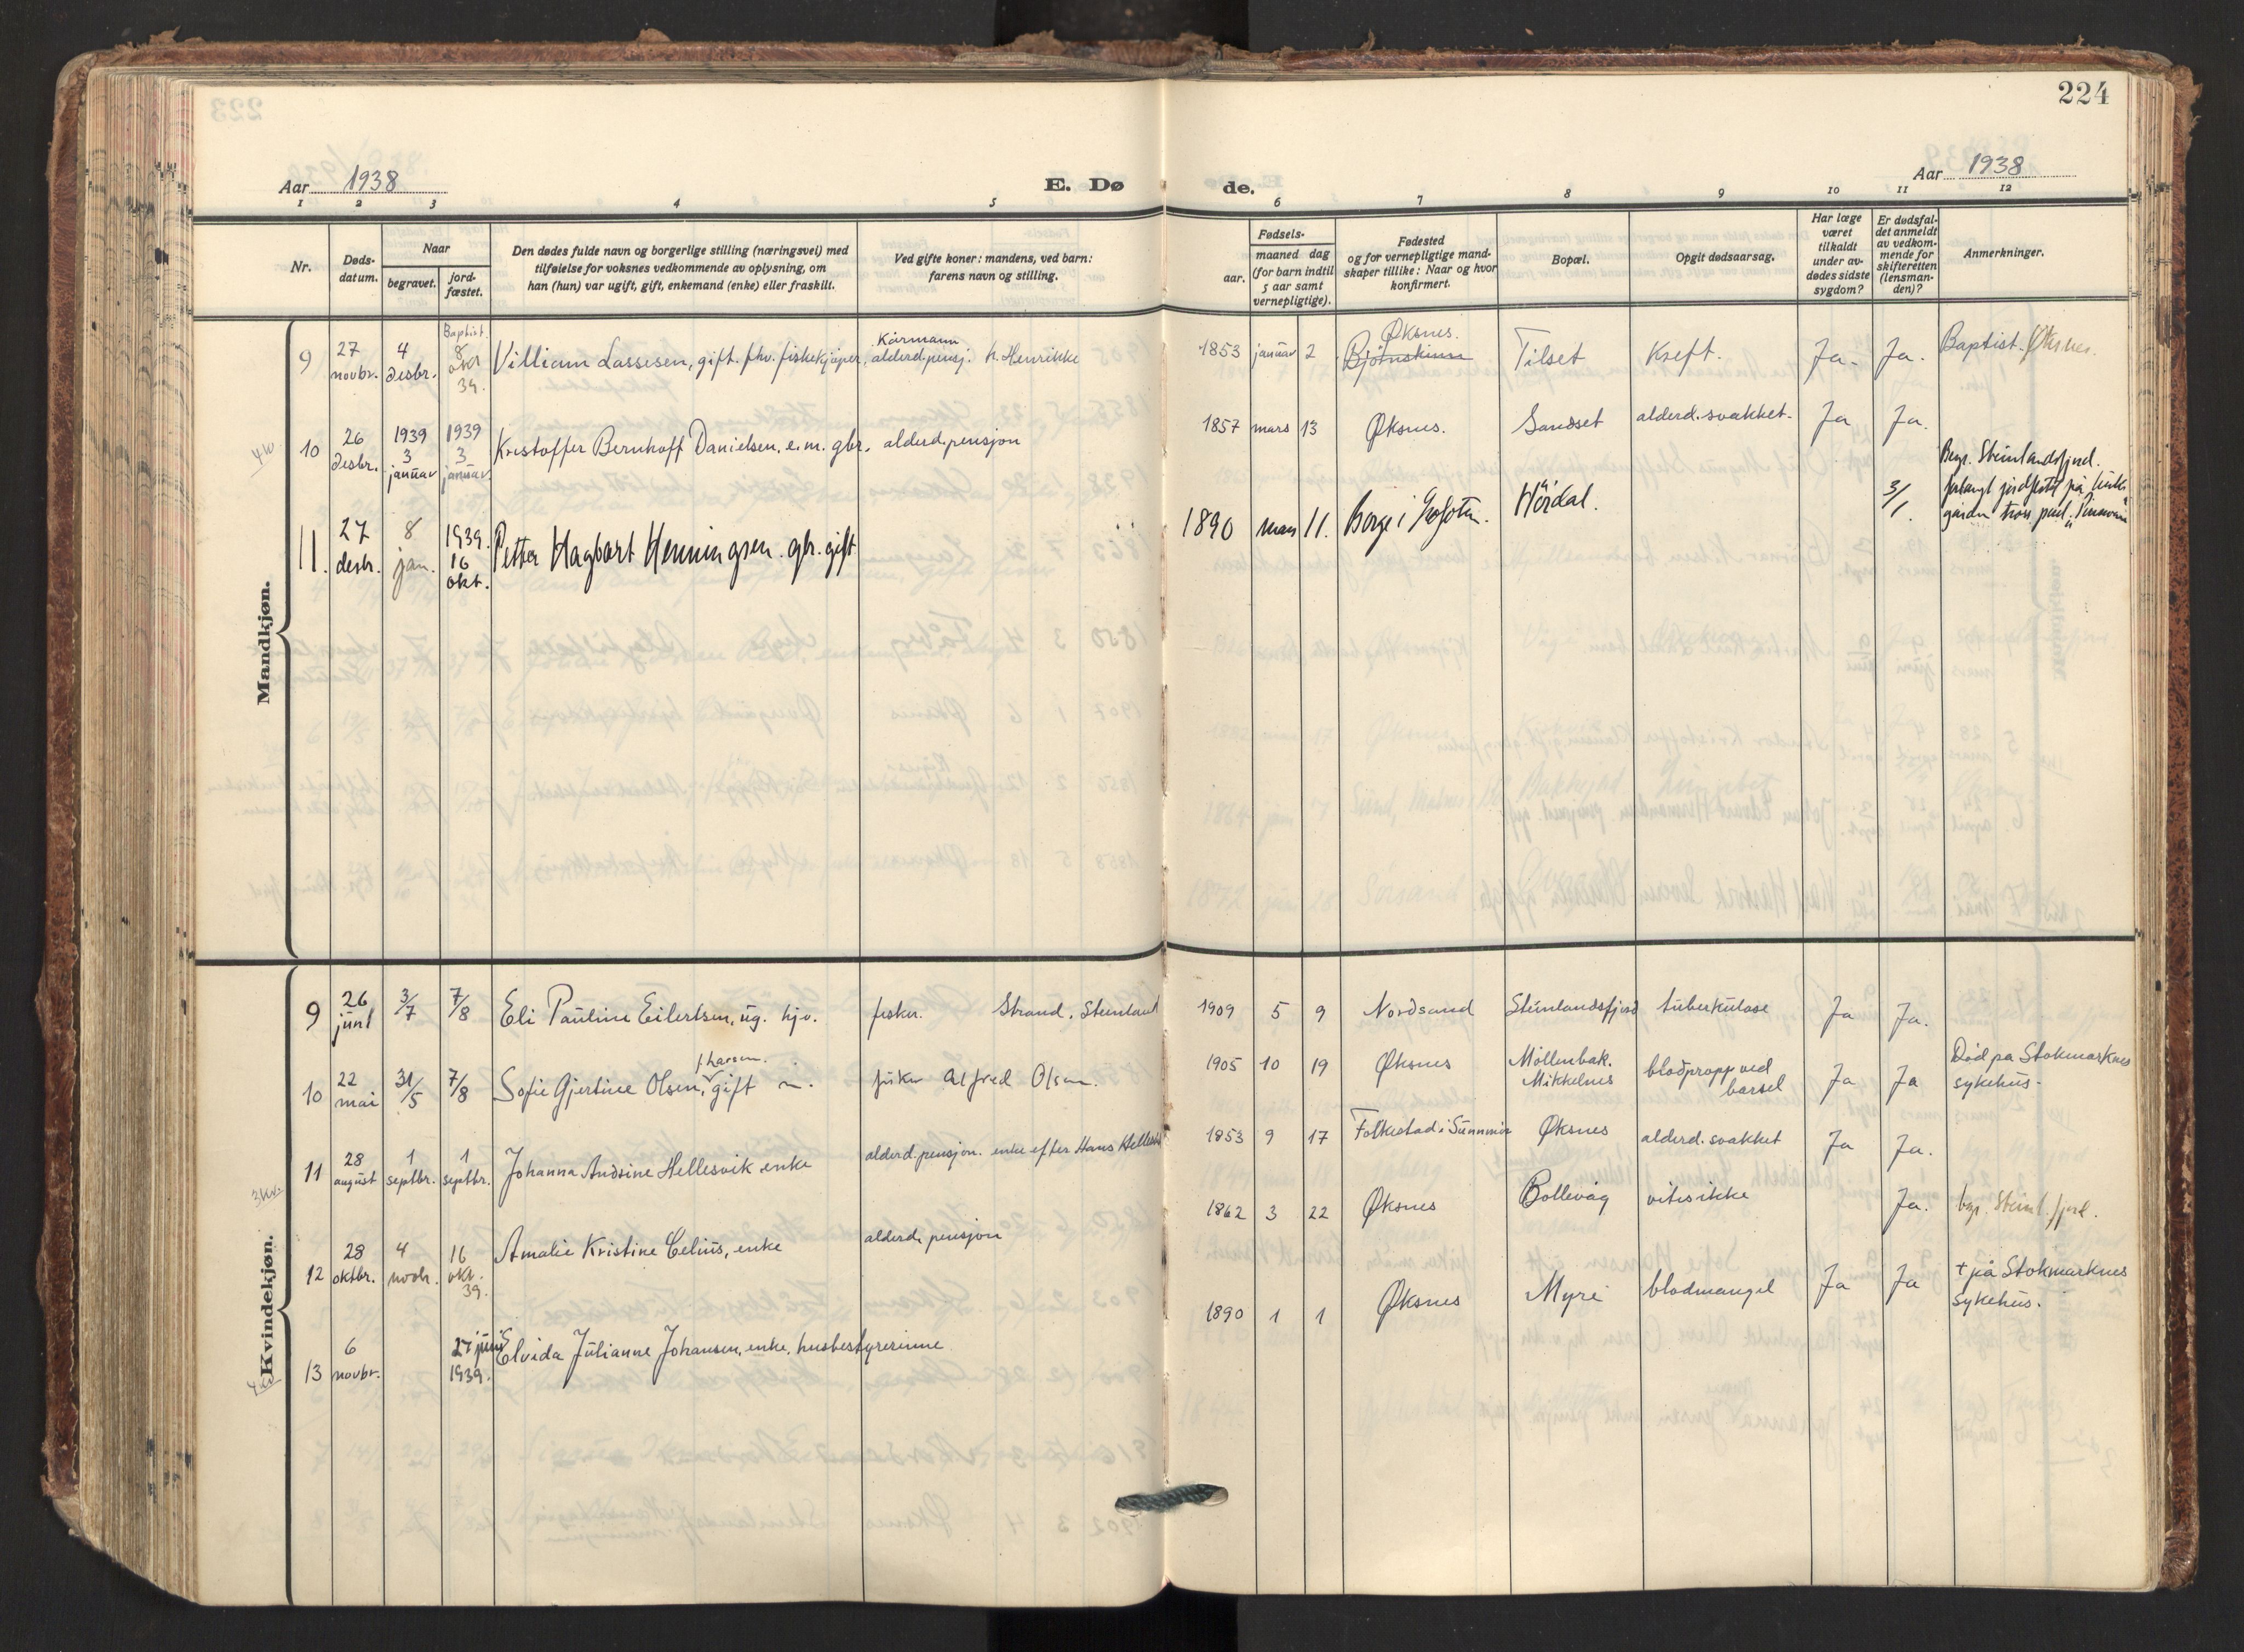 224
Aar 1938
E. Dø
de.
Aar 1938
1 2 3 4 5 6 7 8 9 10 11 12
Nr.
Døds-
datum.
Naar
begravet.
jord-
fæstet.
Den dødes fulde navn og borgerlige stilling (næringsvei) med
tilføielse for voksnes vedkommende av oplysning, om
han (hun) var ugift, gift, enkemand (enke) eller fraskilt.
Ved gifte koner: mandens, ved barn:
farens navn og stilling.
Fødsels-
aar.
maaned dag
(for barn indtil
5 aar samt
vernepligtige).
Fødested
og for vernepligtige mand-
skaper tillike: Naar og hvor
konfirmert.
Bopæl.
Opgit dødsaarsag.
Har læge
været
tilkaldt
under av-
dødes sidste
sygdom?
Er dødsfal-
det anmeldt
av vedkom-
mende for
skifteretten
(lensman-
den)?
Anmerkninger.
Mandkjøn.
9
27
novbr.
4
desbr.
Baptist.
8
okt
39.
Villiam Lassesen, gift. fhv. fiskekjøper,
Kårmann
alderd.pensj. h. Henrikke
1853 januar 2
Øksnes.
Bjørnskinn
Tilset
Kreft.
Ja.
Ja.
Baptist. Øksnes.
10
26
desbr.
1939
3
januar
1939
3
januar
Kristoffer Bernhoff Danielsen, e.m. gbr. alderd.pensjon
1857 mars 13 Øksnes. Sandset alderd.svakhet. Ja Ja.
11.
27
desbr.
8
jan.
1939.
16
okt.
Petter Hagbart Henningsen. gbr. gift
1890 mars 11. Borge i Lofoten. Hördal.
3/1.
Begr. Steinlandsfjord.
Kvindekjøn.
9
26
juni
3/7
7/8
Eli Pauline Eilertsen, ug. hjv.
fisker. Strand, Steinland
1909 5 9 Nordsand Steinlandsfjord tuberkulose Ja Ja.
10
22
mai
31/5
7/8
f. Larsen.
Sofie Gjertine Olsen, gift
fisker Alfred Olsen.
1905 10 19 Øksnes
Möllenbak.
Mikkelnes
blodpropp ved
barsel
Ja Ja
Död på Stokmarknes
sykehus.
11
28
august
1
septbr.
1
septbr.
Johanna Andsine Hellesvik enke
alderd.pensjon. enke efter Hans Hellesvik
1853 9 17 Folkestad i Sunnmör Øksnes alderd.svakhet Ja Ja.
12
28
oktbr.
4
novbr.
16
okt.
39.
Amalie Kristine Celius, enke
alderd. pensjon
1862 3 22 Øksnes Bollevåg vites ikke Ja. begr. Steinl.fjord.
13
6
novbr.
27 juni
1939.
Elvida Julianne Johansen, enke, husbestyrerinne
1890 1 1 Øksnes Myre blodmangel Ja Ja
+ på Stokmarknes
sykehus.